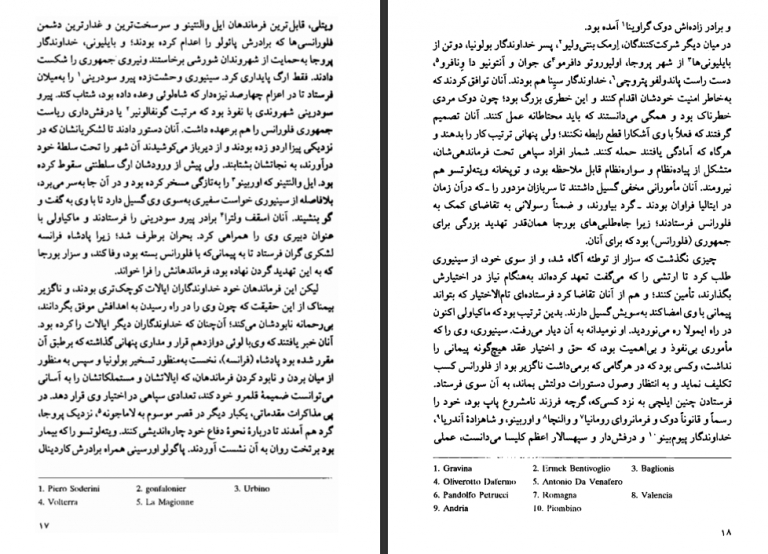 ویتلی، قابل‌ترین فرماندهان ایل والنتینو و سرسخت‌ترین و غدارترین دشمن
فلورانسی‌ها که برادرش پائولو را اعدام کرده بودند؛ و بایلیونی، خداوندگار
پروجا به‌حمایت از شهروندان شورشی برخاستند ونیروی جمهوری را شکست
دادند. فقط ارگ پایداری کرد. سینیوری وحشت‌زده پیرو سودرینی۱ را به‌میلان
فرستاد تا در اعزام چهارصد نیزه‌دار که شاه‌لوئی وعده داده بود، شتاب کند. پیرو
سودرینی شهروندی با نفوذ بود که مرتبت گونفالونیر۲ یا درفش‌داری ریاست
جمهوری فلورانس را هم برعهده داشت. آنان دستور دادند تا لشکریانشان که در
نزدیکی پیزا اردو زده بودند و از دیرباز می‌کوشیدند آن شهر را تحت سلطهٔ خود
درآورند، به نجاتشان بشتابند. ولی پیش از ورودشان ارگ سلطنتی سقوط کرده
بود. ایل والنتینو که اوربینو۳ را به‌تازگی مسخر کرده بود و در آن جا به‌سر می‌برد،
بلافاصله از سینیوری خواست سفیری به‌سوی وی گسیل دارد تا با وی به گفت و
گو بنشیند. آنان اسقف ولترا۴ برادر پیرو سودرینی را فرستادند و ماکیاولی با
عنوان دبیری وی را همراهی کرد. بحران برطرف شد؛ زیرا پادشاه فرانسه
لشکری گران فرستاد تا به پیمانی‌که با فلورانس بسته بود، وفاکند، و سزار بورجا
که به این تهدید گردن نهاده بود، فرماندهانش را فرا خواند.
لیکن این فرماندهان خود خداوندگاران ایالات کوچک‌تری بودند، و ناگزیر
بیمناک از این حقیقت که چون وی را در راه رسیدن به اهدافش موفق بگردانند،
بی‌رحمانه نابودشان می‌کند؛ آن‌چنان که خداوندگاران دیگر ایالات را کرده بود.
آنان خبر یافتند که وی‌با لوئی دوازدهم قرار و مداری پنهانی گذاشته که برطبق آن
مقرر شده بود پادشاه (فرانسه)، نخست به‌منظور تسخیر بولونیا و سپس به منظور
از میان بردن و نابود کردن فرماندهان، که ایالاتشان و مستملکاتشان را به آسانی
می‌توانست ضمیمهٔ قلمرو خود کند، تعدادی سپاهی در اختیار وی قرار دهد. در
پی مذاکرات مقدماتی، یکبار دیگر در قصر موسوم به لاماجونه۵، نزدیک پروجا،
گرد هم آمدند تا دربارهٔ نحوهٔ دفاع خود چاره‌اندیشی کنند. ویته‌لوتسو که بیمار
بود برتخت روان به آن نشست آوردند. پاگولو اورسینی همراه برادرش کاردینال
1. Piero Soderini 2. gonfalonier 3. Urbino
4. Volterra 5. La Magionne
۱۷
و برادر زاده‌اش دوک گراوینا۱ آمده بود.
در میان دیگر شرکت‌کنندگان، اِرمک بنتی‌ولیو۲، پسر خداوندگار بولونیا، دوتن از
بایلیونی‌ها۳ از شهر پروجا، اولیوروتو دافرمو۴ی جوان و آنتونیو دا ونافرو۵،
دست راست پاندولفو پتروچی۶، خداوندگار سیِنا هم بودند. آنان توافق‌کردند که
به‌خاطر امنیت خودشان اقدام کنند و این خطری بزرگ بود؛ چون دوک مردی
خطرناک بود و همگی می‌دانستند که باید محتاطانه عمل کنند. آنان تصمیم
گرفتند که فعلاً با وی آشکارا قطع رابطه نکنند؛ ولی پنهانی ترتیب کار را بدهند و
هرگاه که آمادگی یافتند حمله کنند. شمار افراد سپاهی تحت فرماندهی‌شان،
متشکل از پیاده‌نظام و سواره‌نظام قابل ملاحظه بود، و توپخانه ویته‌لوتسو هم
نیرومند. آنان مأمورانی مخفی گسیل داشتند تا سربازان مزدور را ـ که درآن زمان
در ایتالیا فراوان بودند ـ گرد بیاورند، و ضمناً رسولانی به تقاضای کمک به
فلورانس فرستادند؛ زیرا جاه‌طلبی‌های بورجا همان‌قدر تهدید بزرگی برای
جمهوری (فلورانس) بود که برای آنان.
چیزی نگذشت که سزار از توطئه آگاه شد، و از سوی خود، از سینیوری
طلب کرد تا ارتشی را که می‌گفت تعهد کرده‌اند به‌هنگام نیاز در اختیارش
بگذارند، تأمین کنند؛ و هم از آنان تقاضا کرد فرستاده‌ای تام‌الاختیار که بتواند
پیمانی با وی امضاکند به‌سویش گسیل دارند. بدین ترتیب بود که ماکیاولی اکنون
در راه ایمولا ره می‌نوردید. او نومیدانه به آن دیار می‌رفت. سینیوری، وی را که
مأموری بی‌نفوذ و بی‌اهمیت بود، که حق و اختیار عقد هیچ‌گونه پیمانی را
نداشت، وکسی بود که در هرگامی که برمی‌داشت ناگزیر بود از فلورانس کسب
تکلیف نماید و به انتظار وصول دستورات دولتش بماند، به آن سوی فرستاد.
فرستادن چنین ایلچی به نزد کسی‌که، گرچه فرزند نامشروع پاپ بود، خود را
رسماً و قانوناً دوک و فرمانروای رومانیا۷ و والنچا۸ و اوربینو، و شاهزادهٔ آندریا۹،
خداوندگار پیوم‌بینو۱۰ و درفش‌دار و سپهسالار اعظم کلیسا می‌دانست، عملی
1. Gravina 2. Ermek Bentivoglio 3. Baglionis
4. Oliverotto Dafermo 5. Antonio Da Venafero
6. Pandolfo Petrucci 7. Romagna 8. Valencia
9. Andria 10. Piombino
۱۸